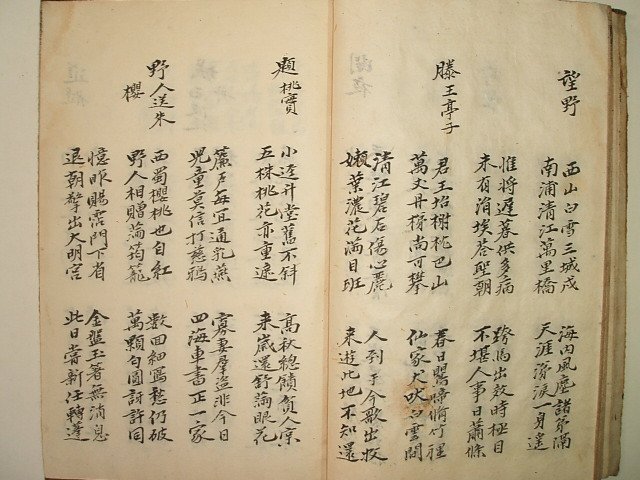 望野
西山白雪三城戍
南浦清江萬里橋
海內風塵諸弟隔
天涯涕淚一身遙
惟將遲暮供多病
未有消埃答聖朝
跨馬出效時極目
不堪人事日蕭條
滕王亭子
君王坮榭桃巴山
萬丈丹梯尚可攀
春日鶯啼脩竹裡
仙家犬吠白雲間
清江碧石傷心麗
嫩葉濃花滿目班
人到于今歌出牧
來遊此地不知還
題桃實
小逕升堂舊不斜
五株桃花亦重遮
高秋總饋貧人宗
來歲還舒滿眼花
簾戶每宜通乳燕
兒童莫信打慈鴉
寡妻群盜非今日
四海車書正一家
野人送朱
櫻
西蜀櫻桃也自紅
野人相贈滿筠籠
數回細寫愁仍破
萬顆勻圓訝許同
憶昨賜霑門下省
退朝擎出大明宮
金盤玉箸無消息
此日嘗新任轉蓬